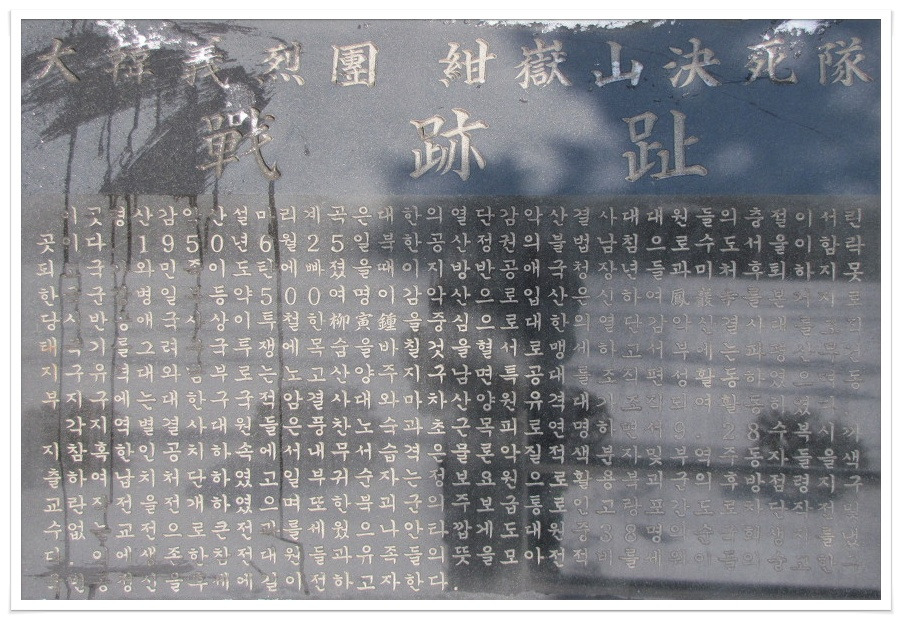 大韓義烈團 紺嶽山決死隊
戰跡趾
이곳 명산감악산 설마리 계곡은 대한의열단 감악산 결사대 대원들의 충절이 서린
곳이다 1950년 6월 25일 북한공산정권의 불법남침으로 수도서울이 함락
되 와 민 이 도탄에 빠졌을 때 이지방 반공애국청장년들과 미처 후퇴하지 못
한 군 병 일 등 약 500여명이 감악산으로 입산 은신하여 鳳巖 를 로
당시 반 애국 상이 투철한 柳寅鍾을 중심으로 대한의열단 감악산 결사대를
태극기를 그려 구국투쟁에 목숨을 바칠것을 혈서로 맹세하고 서부에는 파
지구 유격대와 부로는 노고산 양주지구 남면특공대를 조직편성 활동하였으며 동
부지구에는 대한구국 암결사와 마차산 양원유격대가 조직되여 활동하였다
각지역별 결사대원들은 풍찬노숙과 초근목피로 연명하면서 9.28 수복시까
지 참혹한 공치하속에서 무 습격은 물론 악질 적색분자 및 부역주동자들을 색
출하여 인처단하였고 일부 귀순자는 정보요원으로 활용 북괴군의 후방점령지구
교란작전을 전개하였으며 또한 북괴군의 주보급통로인 고랑포간의 도로차단작전
수없는 교전으로 큰 전과를 세웠으나 안타깝게도 대원중 38명의 순
다. 이에 생존한 참전대원들과 유족들의 뜻을 모아 전적비를 세워 이들의 숭고한
정신을 후세에 길이 전하고자 한다.